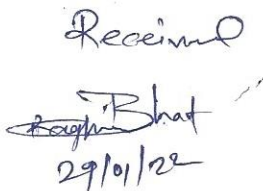 Received
Raghu Bhat
29/01/22